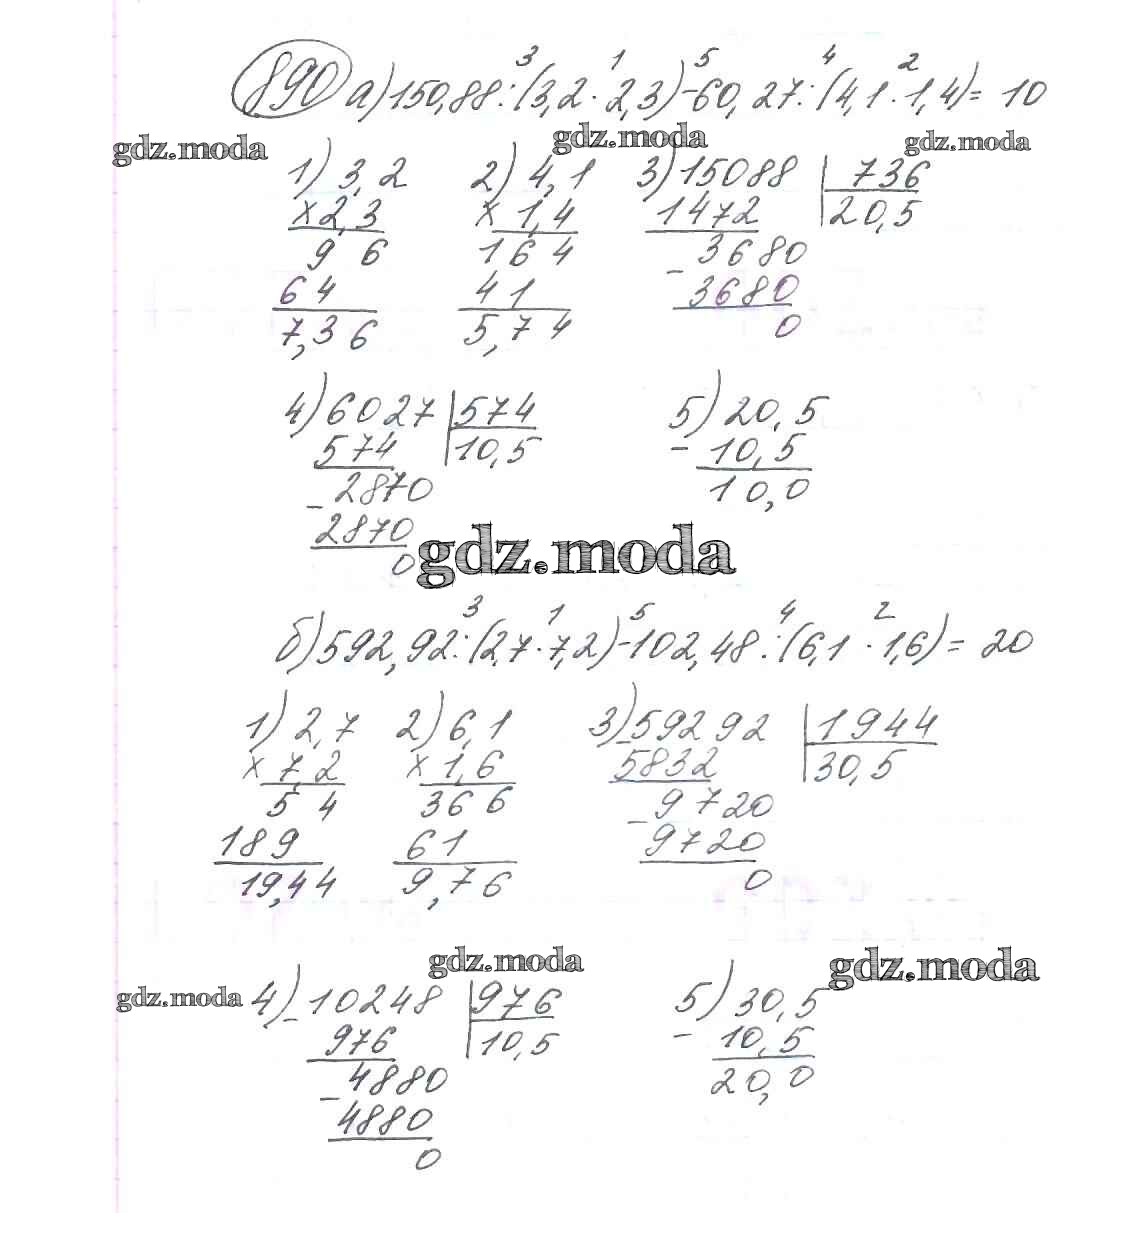 890 а) 150,88:(3,2·2,3)-60,27:(4,1·1,4)= 10
3 1 5 4 2
gdz.moda gdz.moda gdz.moda
1) 3,2 2) 4,1 3) 15088 736
×2,3 ×1,4 1472 20,5
96 164 -3680
64 41 3680
7,36 5,74 0
4) 6027 574 5) 20,5
574 10,5 - 10,5
-2870 10,0
2870
0
gdz.moda
3 1 5 4 2
б) 592,92:(2,7·7,2)-102,48:(6,1·1,6)= 20
1) 2,7 2) 6,1 3) -59292 1944
×7,2 ×1,6 5832 30,5
54 366 -9720
189 61 9720
19,44 9,76 0
gdz.moda gdz.moda
gdz.moda 4) -10248 976 5) 30,5
976 10,5 - 10,5
-4880 20,0
4880
0